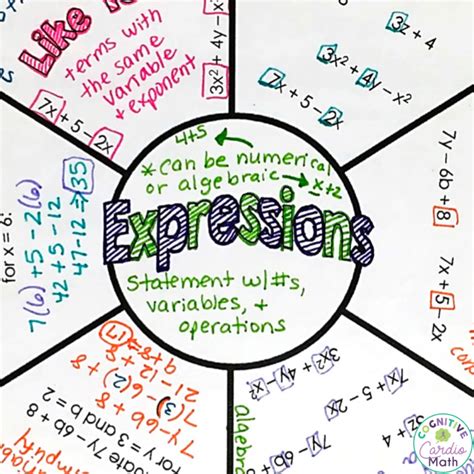 Like
terms with
the same
variable
+ exponent
7x + 5 – 2x
3x² + 4y –
3z + 4
3x² + 4y – x²
7x + 5 – 2x
7y – 6b + 8
7x + 5 – 2x
4+5
*Can be numerical
or algebraic → x+2
Expressions
Statement w/#s,
variables, +
operations
for x = 6:
7(6) + 5 - 2(6)
42 + 5 - 12
47 - 12 → 35
7y – 6b + 8
for y = 3 and b = 2
7y - 6b + 8
7(3) - 6(2) + 8
21 - 12 + 8
9 + 8 = 17
3x² + 4y – x²
7x + 5 – 2x
7y – 6b + 8
COGNITIVE
Cardio
Math